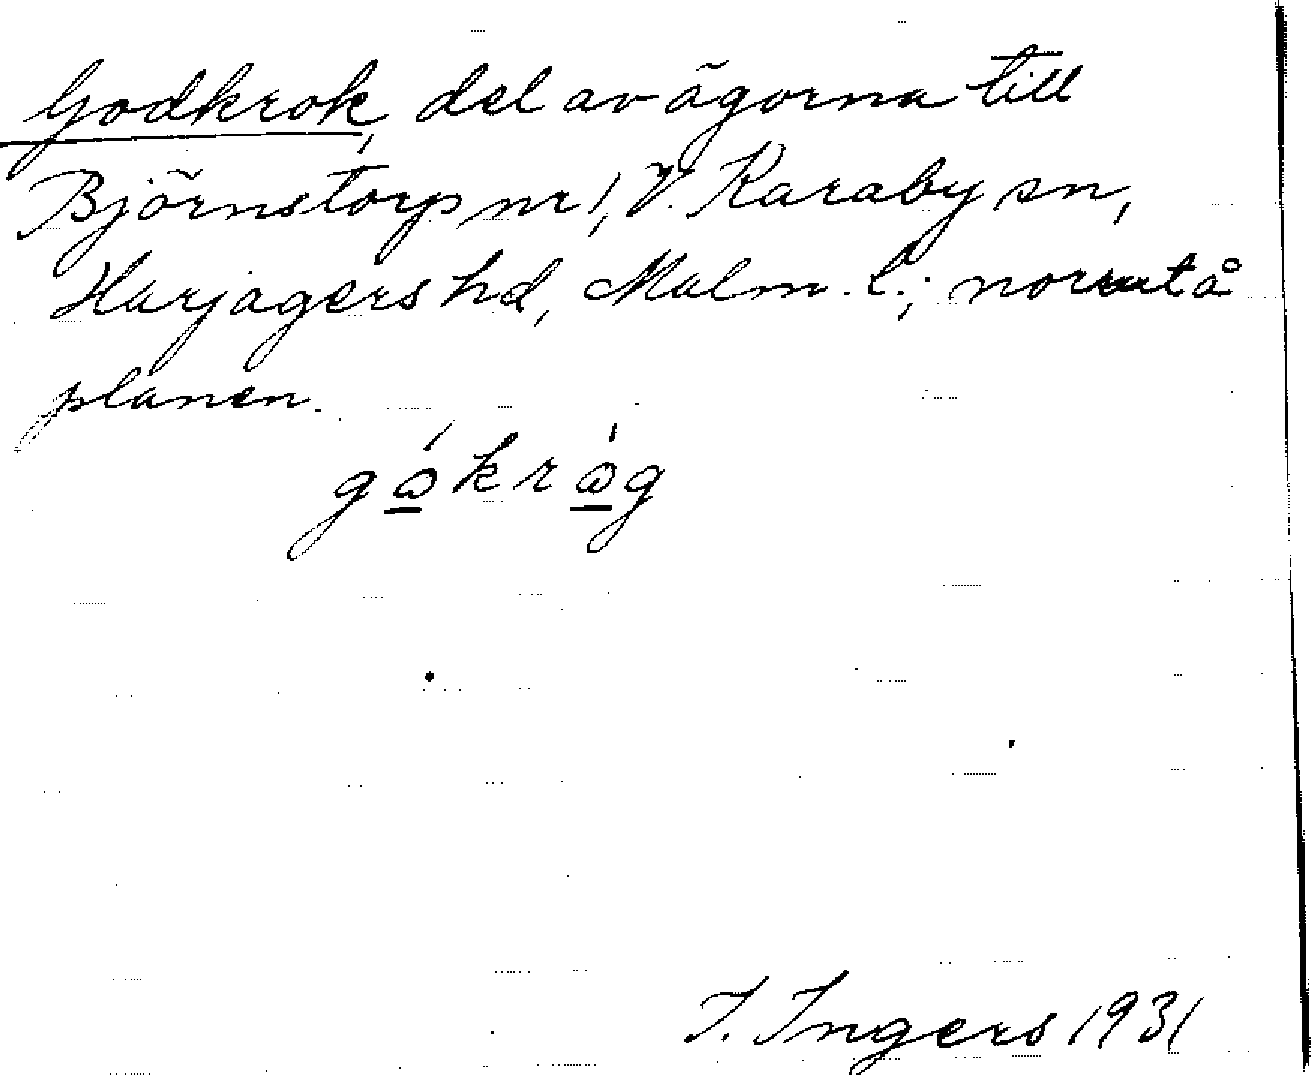 Godkrok, del av ägorna till
Björnstorp nr 1, V. Karaby sn,
Harjagers hd, Malm. l.; norrut å
planen.
gώ̲krώ̲g
I. Ingers 1931